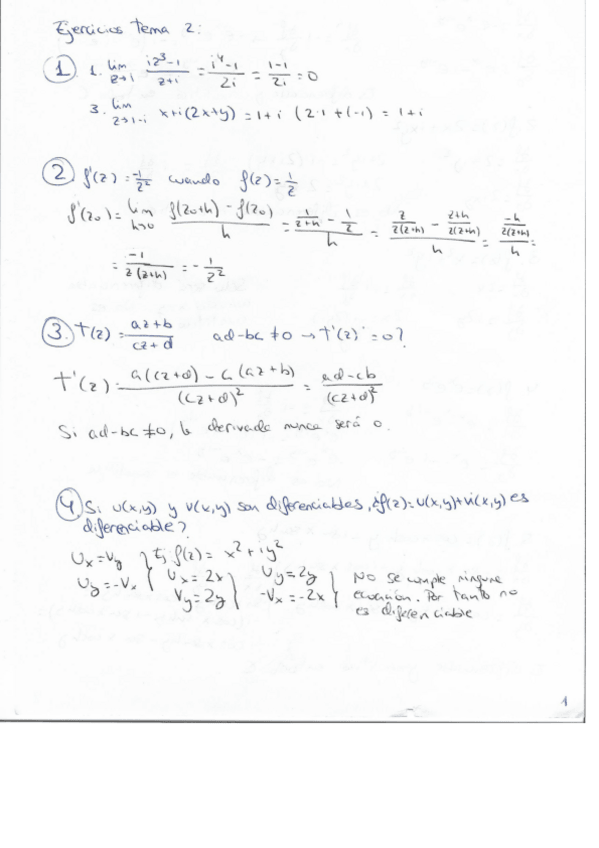 Ejercicios Tema 2:
① 1. lim z→i (iz³-1)/(z+i) = (i⁴-1)/(2i) = (1-1)/(2i) = 0
3. lim z→1-i x+i(2x+y) = 1+i (2·1+(-1) = 1+i
② f'(z) = -1/z² cuando f(z) = 1/z
f'(z₀) = lim h→0 (f(z₀+h) - f(z₀))/h = (1/(z+h) - 1/z)/h = (z/(z(z+h)) - (z+h)/(z(z+h)))/h = (-h/(z(z+h)))/h =
= -1/(z(z+h)) = -1/z²
③. T(z) = (az+b)/(cz+d) ad-bc ≠0 → T'(z) = 0?
T'(z) = (a(cz+d) - c(az+b))/(cz+d)² = (ad-cb)/(cz+d)²
Si ad-bc ≠0, la derivada nunca será 0.
④. Si u(x,y) y v(x,y) son diferenciables, ¿f(z)=u(x,y)+vi(x,y) es
diferenciable?
Ux = Vy } Ej f(z) = x²+iy²
Uy = -Vx } Ux = 2x } Uy = 2y } No se cumple ninguna
Vy = 2y } -Vx = -2x } ecuación. Por tanto no
es diferenciable
1